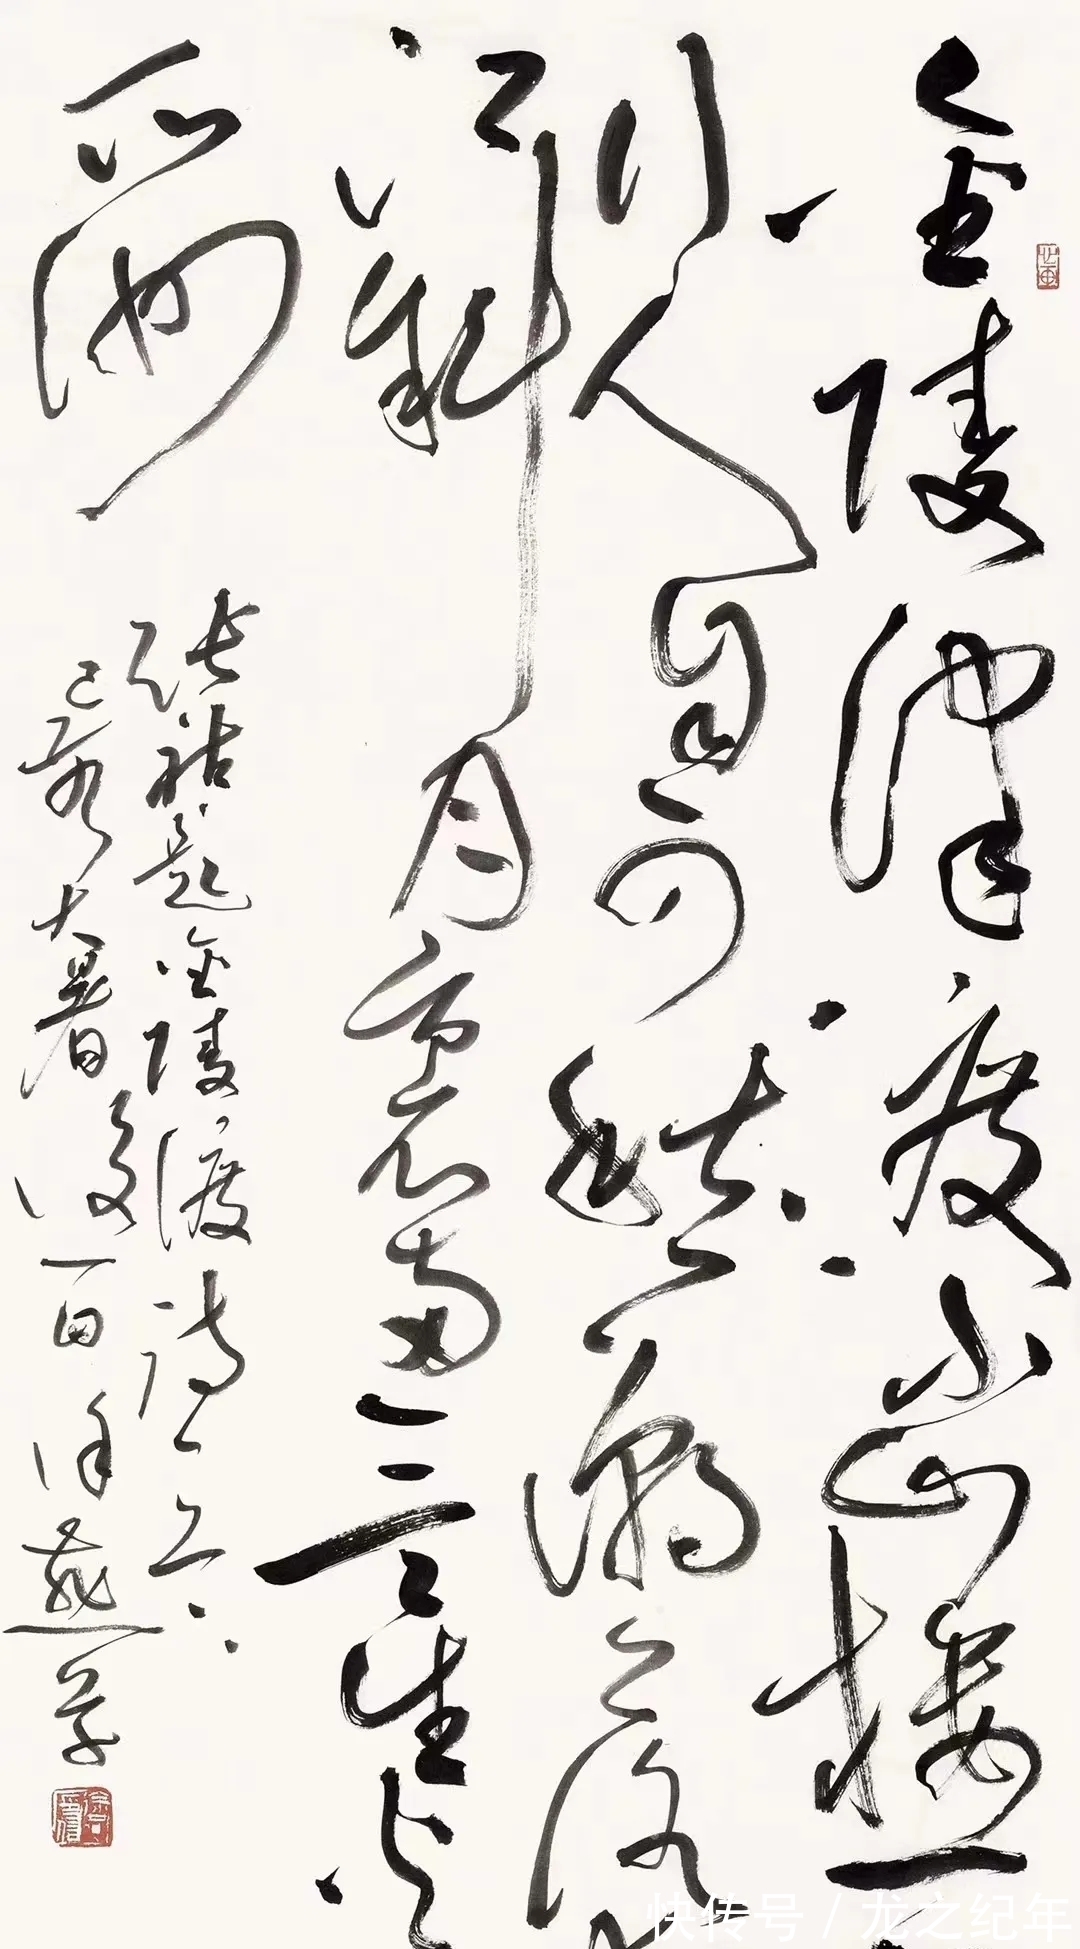 金陵津渡小山楼一
行人自可愁潮落
江斜月裏两三星火
瓜洲
张祜题金陵渡诗一首
己亥大暑后一日徐燕
快传号 / 龙之纪年